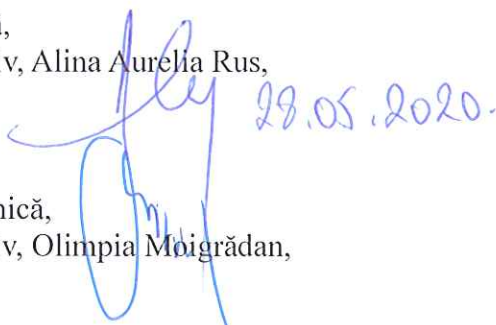 i,
v, Alina Aurelia Rus,
28.05.2020.
nică,
v, Olimpia Moigrădan,